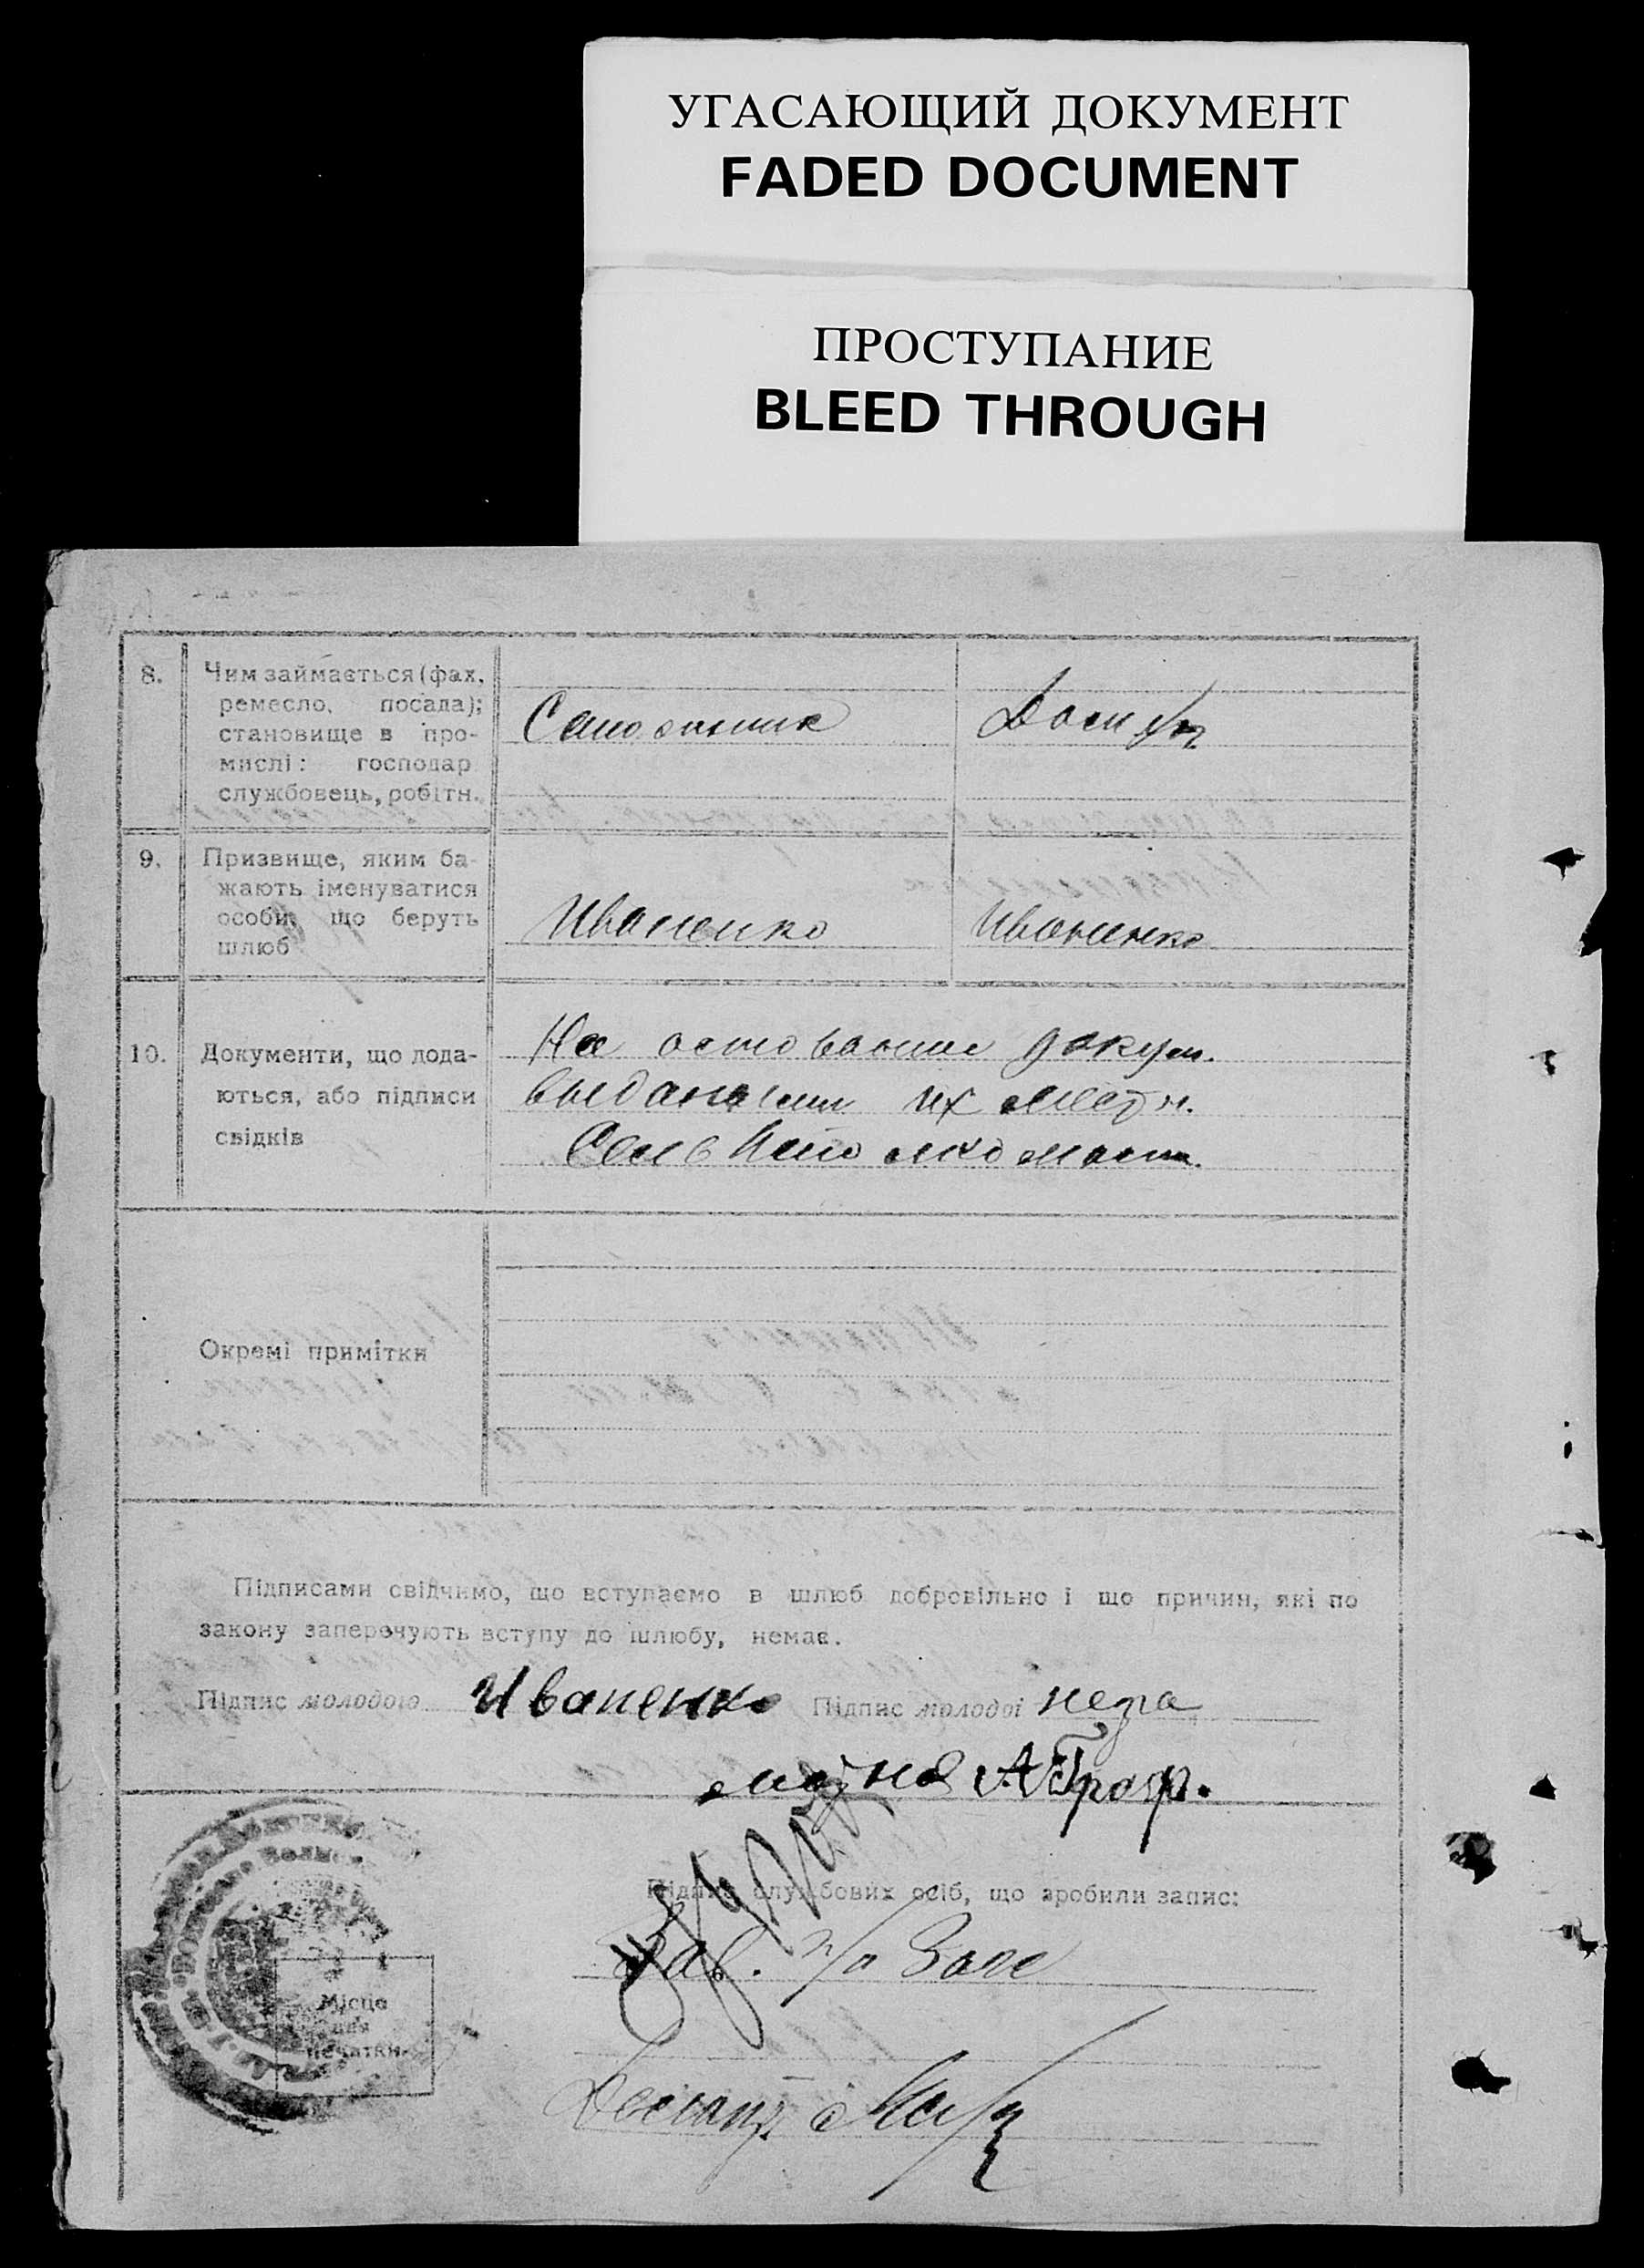 УГАСАЮЩИЙ ДОКУМЕНТ
FADED DOCUMENT
ПРОСТУПАНИЕ
BLEED THROUGH
8. Чим займається (фах,
ремесло, посада);
становище в про-
мислі: господар
службовець, робітн.
9. Призвище, яким ба-
жають іменуватися
особи, що беруть
шлюб
Иваненко Иваненко
10. Документи, що дода-
ються, або підписи
свідків
На основание докум.
выданными их местн.
Окремі примітки
Підписами свідчимо, що вступаємо в шлюб добровільно і що причин, які по
закону заперечують вступу до шлюбу, немає.
Підпис молодого Иваненко Підпис молодої негра
мотна
Підпис службових осіб, що зробили запис:
Зав. п/о Загс
Місце
для
печатки